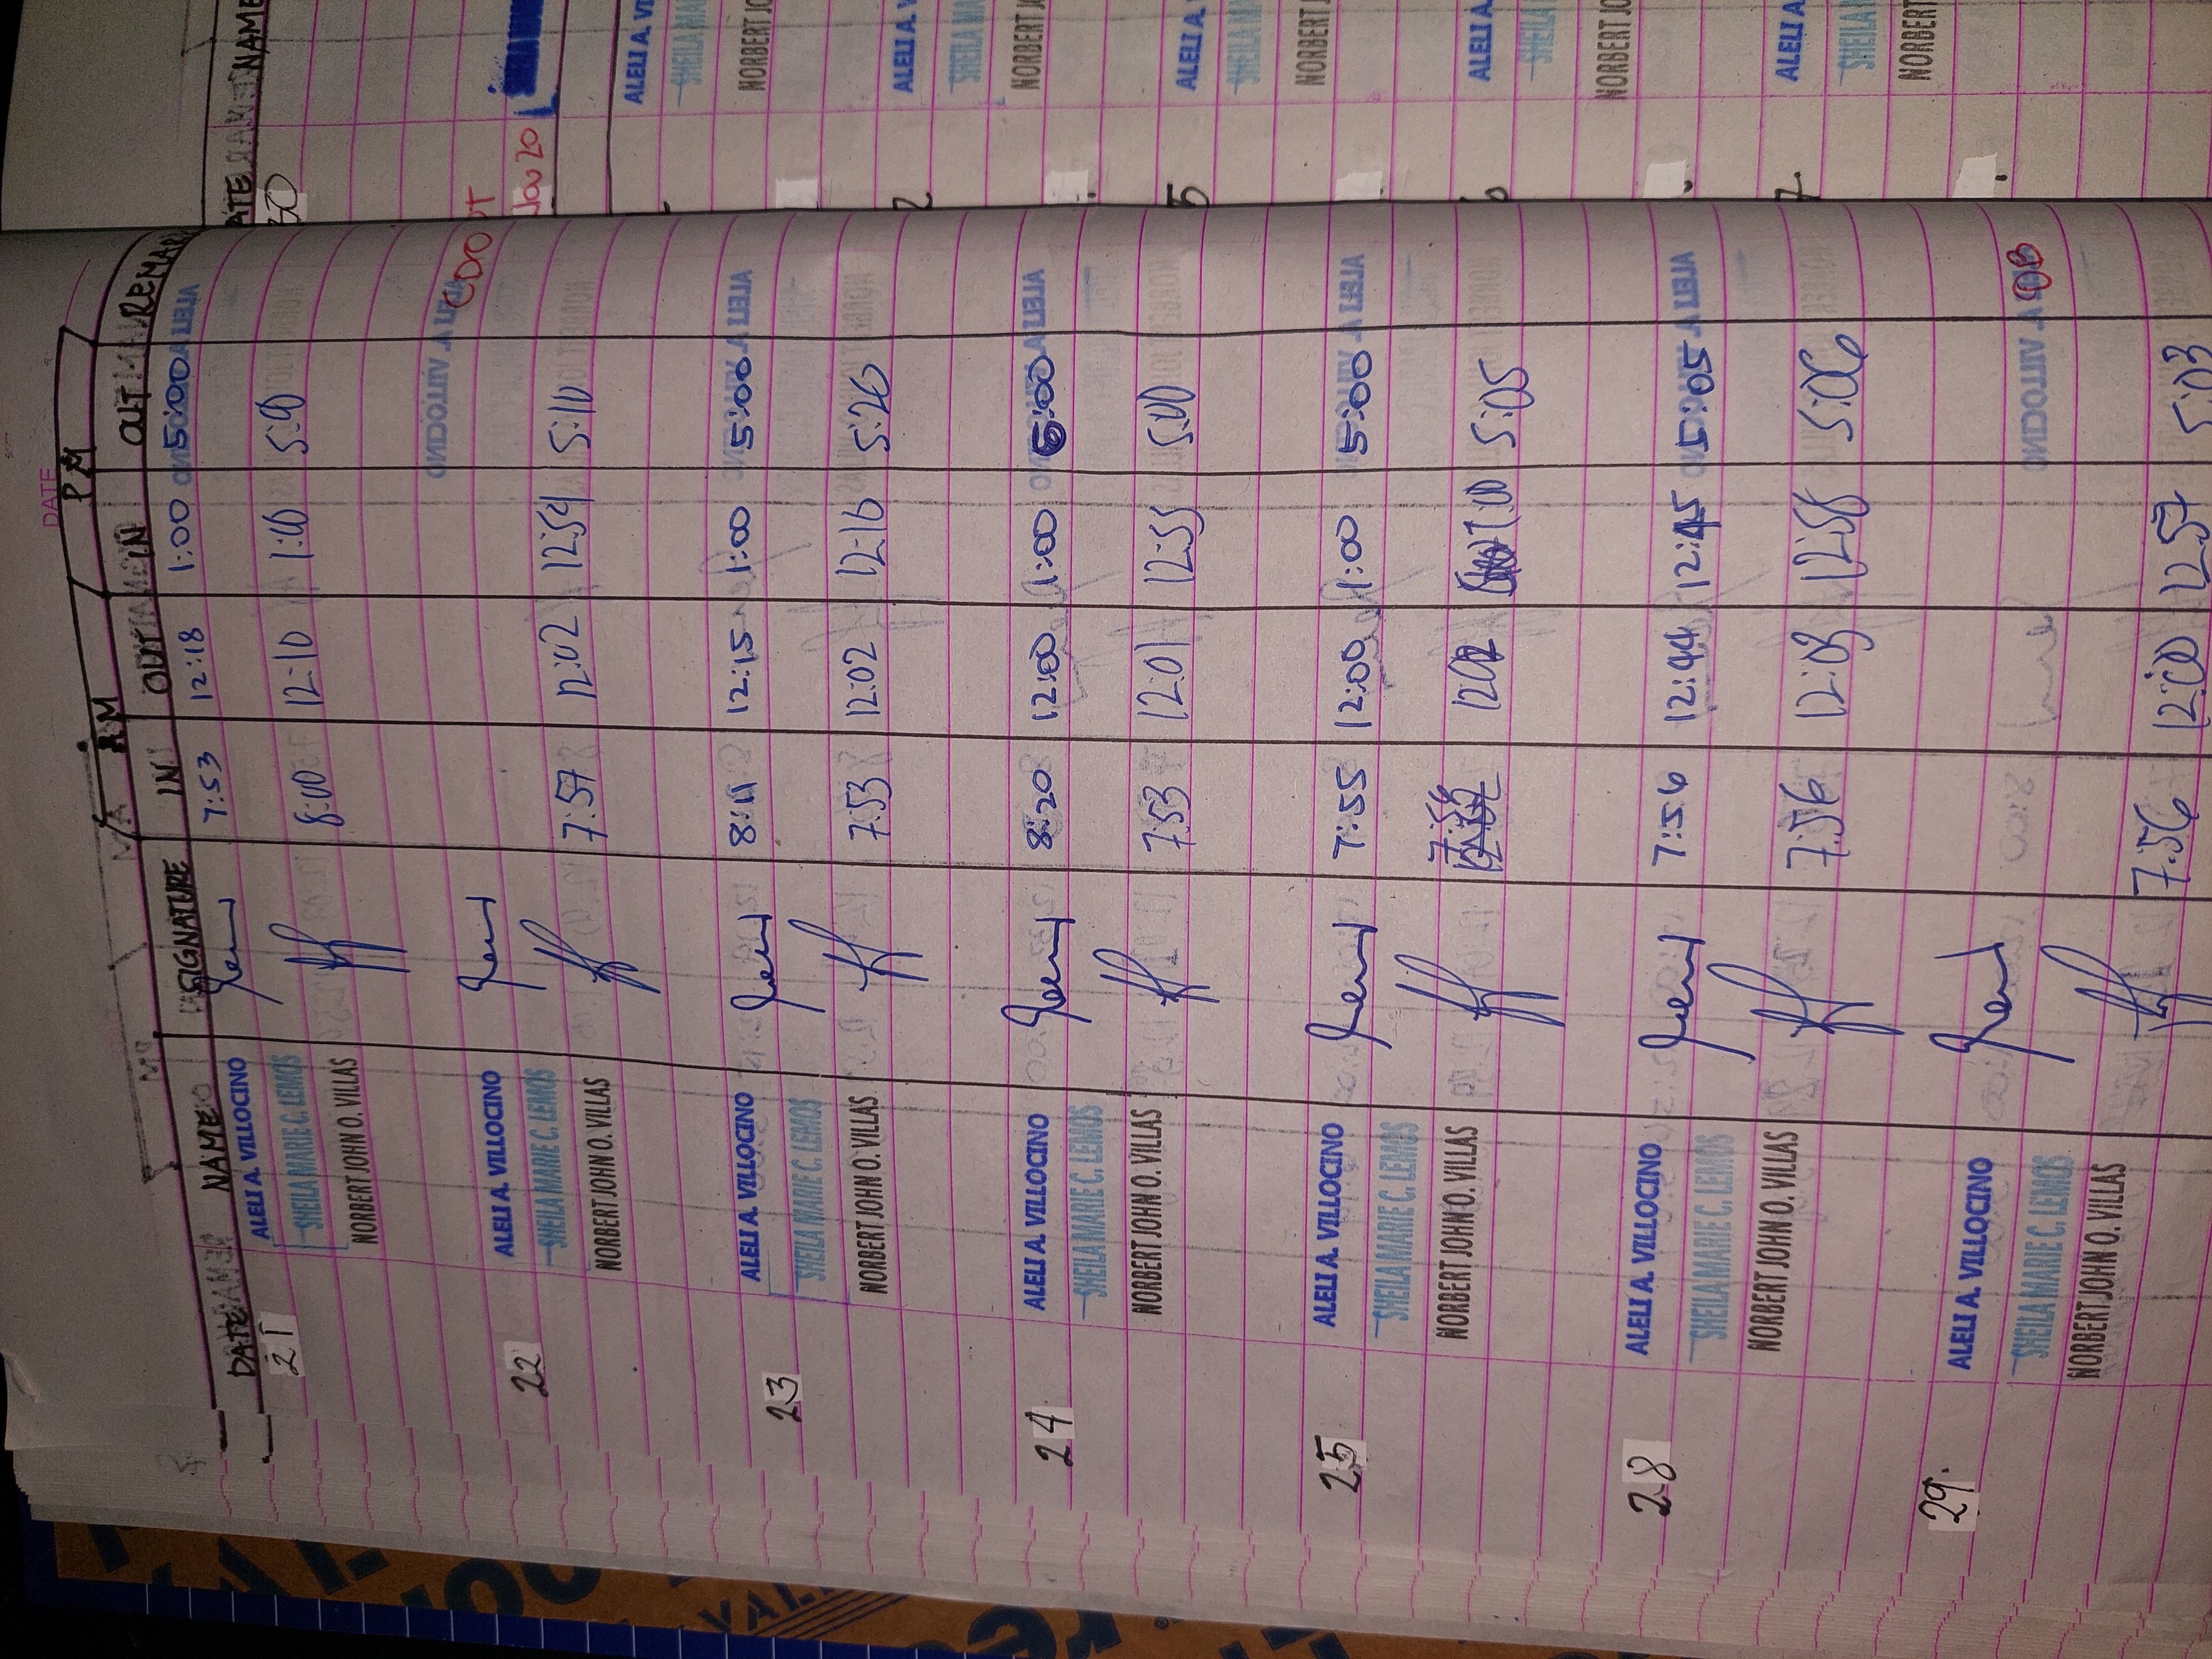 DATE
AM PM
DATE NAME SIGNATURE IN OUT IN OUT REMARK
21 ALELI A. VILLOCINO 7:53 12:18 1:00 5:00
SHEILA MARIE C. LEMOS
NORBERT JOHN O. VILLAS 8:00 12:10 1:00 5:00
22 ALELI A. VILLOCINO CDO
SHEILA MARIE C. LEMOS
NORBERT JOHN O. VILLAS 7:57 12:02 12:54 5:10
23 ALELI A. VILLOCINO 8:11 12:15 1:00 5:00
SHEILA MARIE C. LEMOS
NORBERT JOHN O. VILLAS 7:53 12:02 12:16 5:26
24 ALELI A. VILLOCINO 8:20 12:00 1:00 5:00
SHEILA MARIE C. LEMOS
NORBERT JOHN O. VILLAS 7:53 12:01 12:55 5:00
25 ALELI A. VILLOCINO 7:55 12:00 1:00 5:00
SHEILA MARIE C. LEMOS
NORBERT JOHN O. VILLAS 7:56 12:02 1:00 5:05
28 ALELI A. VILLOCINO 7:56 12:44 12:45 5:05
SHEILA MARIE C. LEMOS
NORBERT JOHN O. VILLAS 7:56 12:03 12:58 5:06
29. ALELI A. VILLOCINO OB
SHEILA MARIE C. LEMOS
NORBERT JOHN O. VILLAS 7:56 12:00 12:57 5:03
DATE NAME
30
Nov 20
ALELI A. VI
SHEILA MA
NORBERT JO
2 ALELI A. V
SHEILA MA
NORBERT JO
5 ALELI A.
SHEILA MA
NORBERT J
6 ALELI A.
SHEILA
NORBERT JO
7 ALELI A
SHEILA M
NORBERT